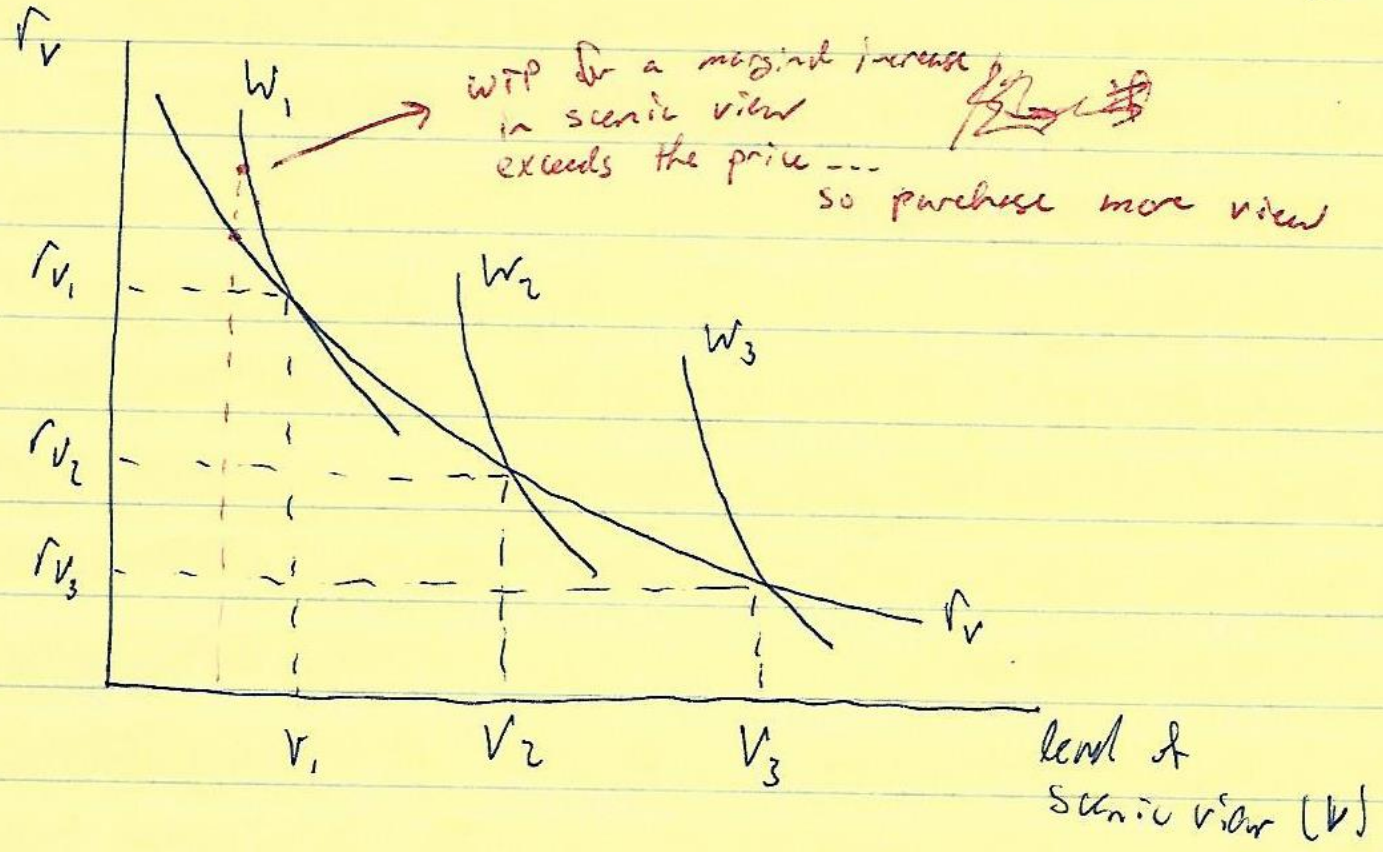 r_v
W₁
WTP for a marginal increase
in scenic view
exceeds the price ...
so purchase more view
r_v₁
W₂
W₃
r_v₂
r_v₃
r_v
V₁
V₂
V₃
level of
scenic view (V)